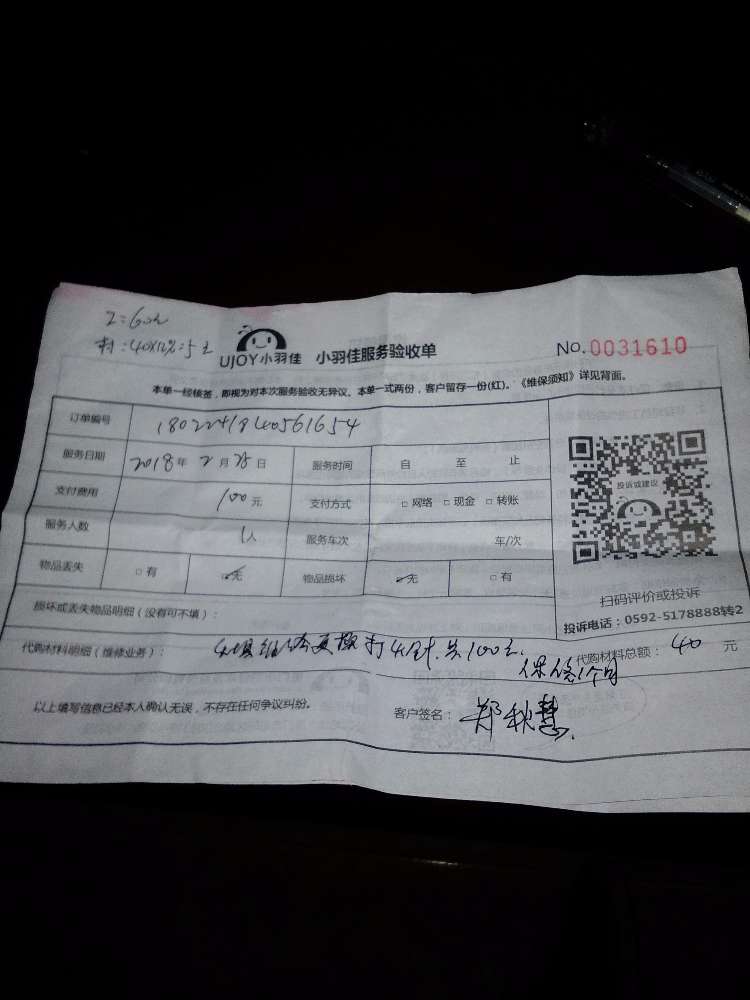 工:60元
材:40×12%=5元
UJOY小羽佳 小羽佳服务验收单 No.0031610
本单一经核签，即视为对本次服务验收无异议。本单一式两份，客户留存一份(红)。《维保须知》详见背面。
订单编号 1802241840561654
服务日期 2018年2月25日 服务时间 自 至 止
支付费用 100元 支付方式 □网络 □现金 □转账
服务人数 1人 服务车次 车/次
物品丢失 □有 □无 物品损坏 □无 □有
投诉或建议
扫码评价或投诉
投诉电话：0592-5178888转2
损坏或丢失物品明细（没有可不填）：
代购材料明细（维修业务）： 更换 共100元 代购材料总额：40 元
保修1个月
以上填写信息已经本人确认无误，不存在任何争议纠纷。 客户签名：郑秋慧